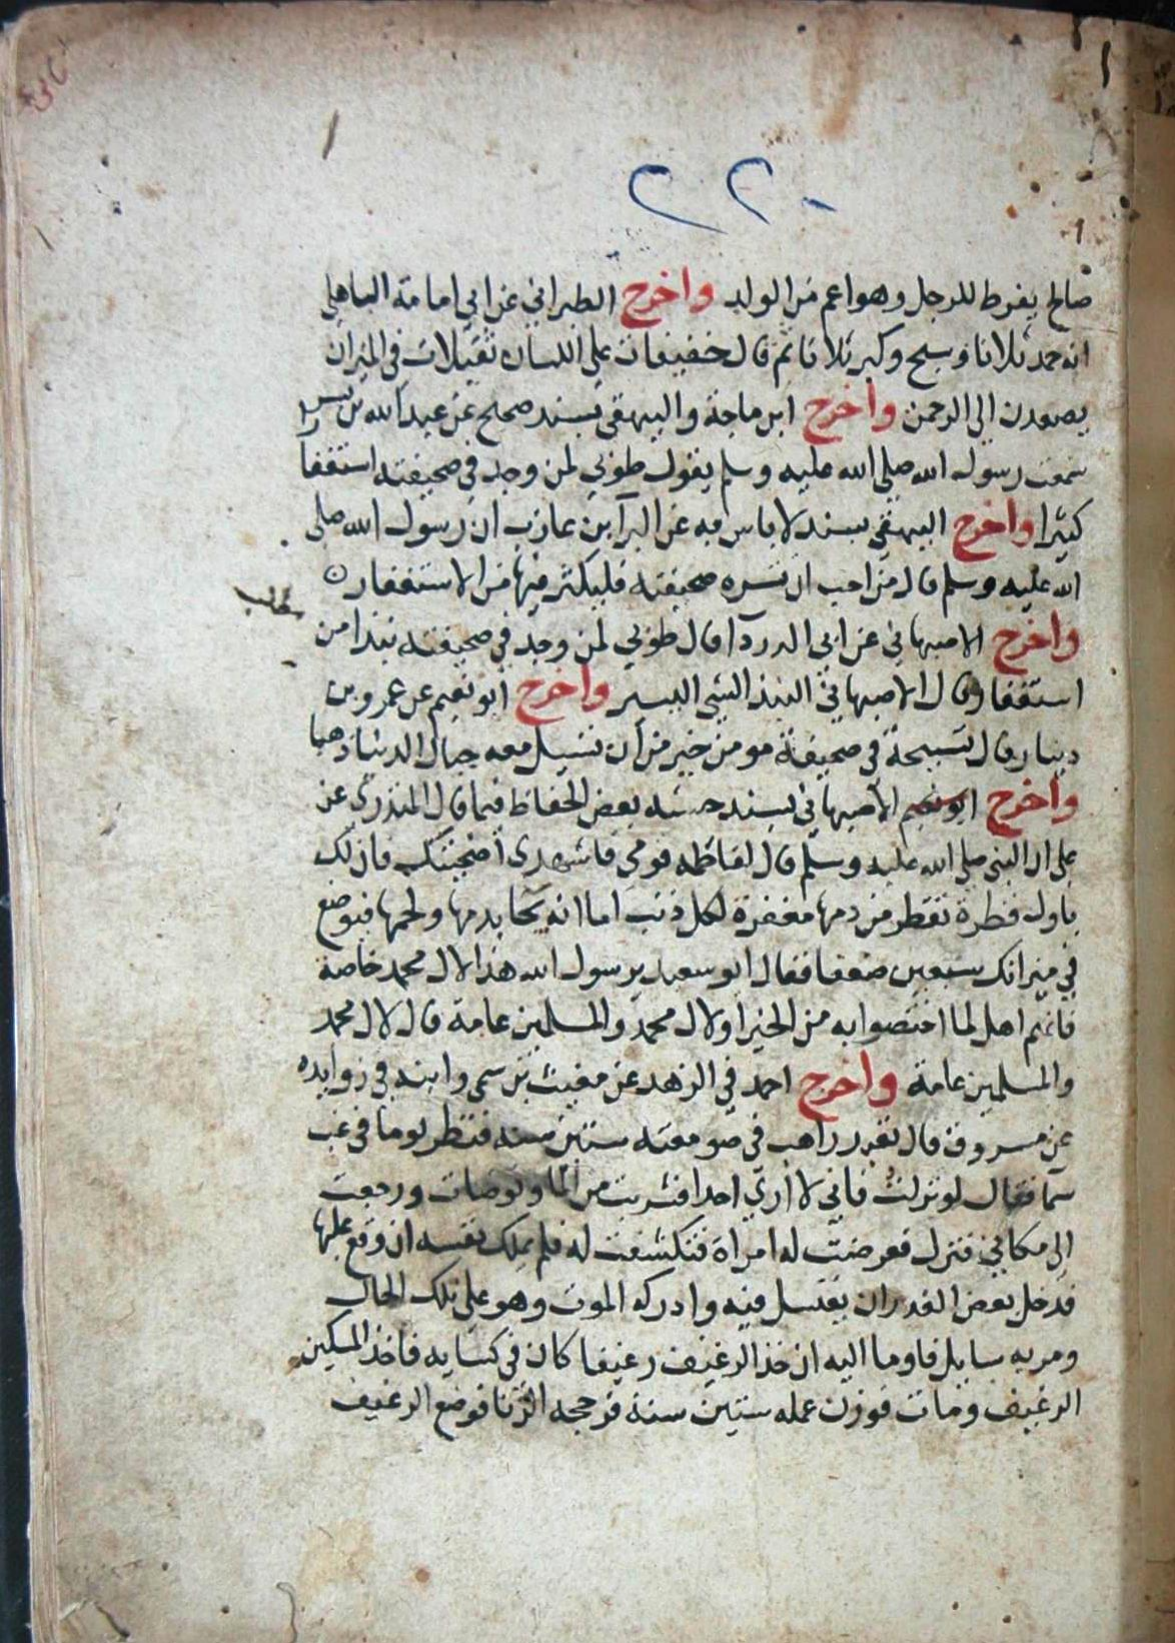 ٢٢٠
صالح يفرط للرجل وهو اعم من الولد واخرج الطبراني عن ابي امامة الباهلي
انه حمد ثلاثا وسبح وكبر ثلاثا ثم قال خفيفات على اللسان ثقيلات في الميزان
يصعدن الى الرحمن واخرج ابن ماجة والبيهقي بسند صحيح عن عبد الله بن بسر
سمعت رسول الله صلى الله عليه وسلم يقول طوبى لمن وجد في صحيفته استغفارا
كثيرا واخرج البيهقي بسند لا باس به عن البرآ بن عازب ان رسول الله صلى
الله عليه وسلم قال من احب ان تسره صحيفته فليكثر فيها من الاستغفار
مطلب
واخرج الاصبهاني عن ابي الدردآ قال طوبى لمن وجد في صحيفته نبذا من
استغفار قال الاصبهاني النبذ الشي اليسير واخرج ابو نعيم عن عمرو بن
دينار قال تسبيحة في صحيفة مومن خير من ان تسيل معه جبال الدنيا ذهبا
واخرج ابو نعيم الاصبهاني بسند حسنه بعض الحفاظ فيما قال المنذري عن
على ان النبي صلى الله عليه وسلم قال لفاطمه قومي فاشهدى اضحيتك فان لك
باول قطرة تقطر من دمها مغفرة لكل ذنب اما انه يجا بدمها ولحمها فيوضع
في ميزانك سبعين ضعفا فقال ابو سعيد يرسول الله هذا لال محمد خاصة
فانهم اهل لما اختصوا به من الخير او لال محمد والمسلمين عامة قال لال محمد
والمسلمين عامة واخرج احمد في الزهد عن مغيث بن سمى وابنه في زوايده
عن مسروق قال تعبد راهب في صومعته ستين سنه فنظر يوما في غب
سما فقال لو نزلت فاني لا ارى احدا فشربت من الما وتوضات ورجعت
الى مكاني فنزل فعرضت له امراة فتكشفت له فلم يملك نفسه ان وقع عليها
فدخل بعض الغدران يغتسل فيه وادركه الموت وهو على تلك الحال
ومر به سايل فاوما اليه ان خذ الرغيف رغيفا كان في كسايه فاخذ المسكين
الرغيف ومات فوزن عمله ستين سنة فرجحه الزنا فوضع الرغيف